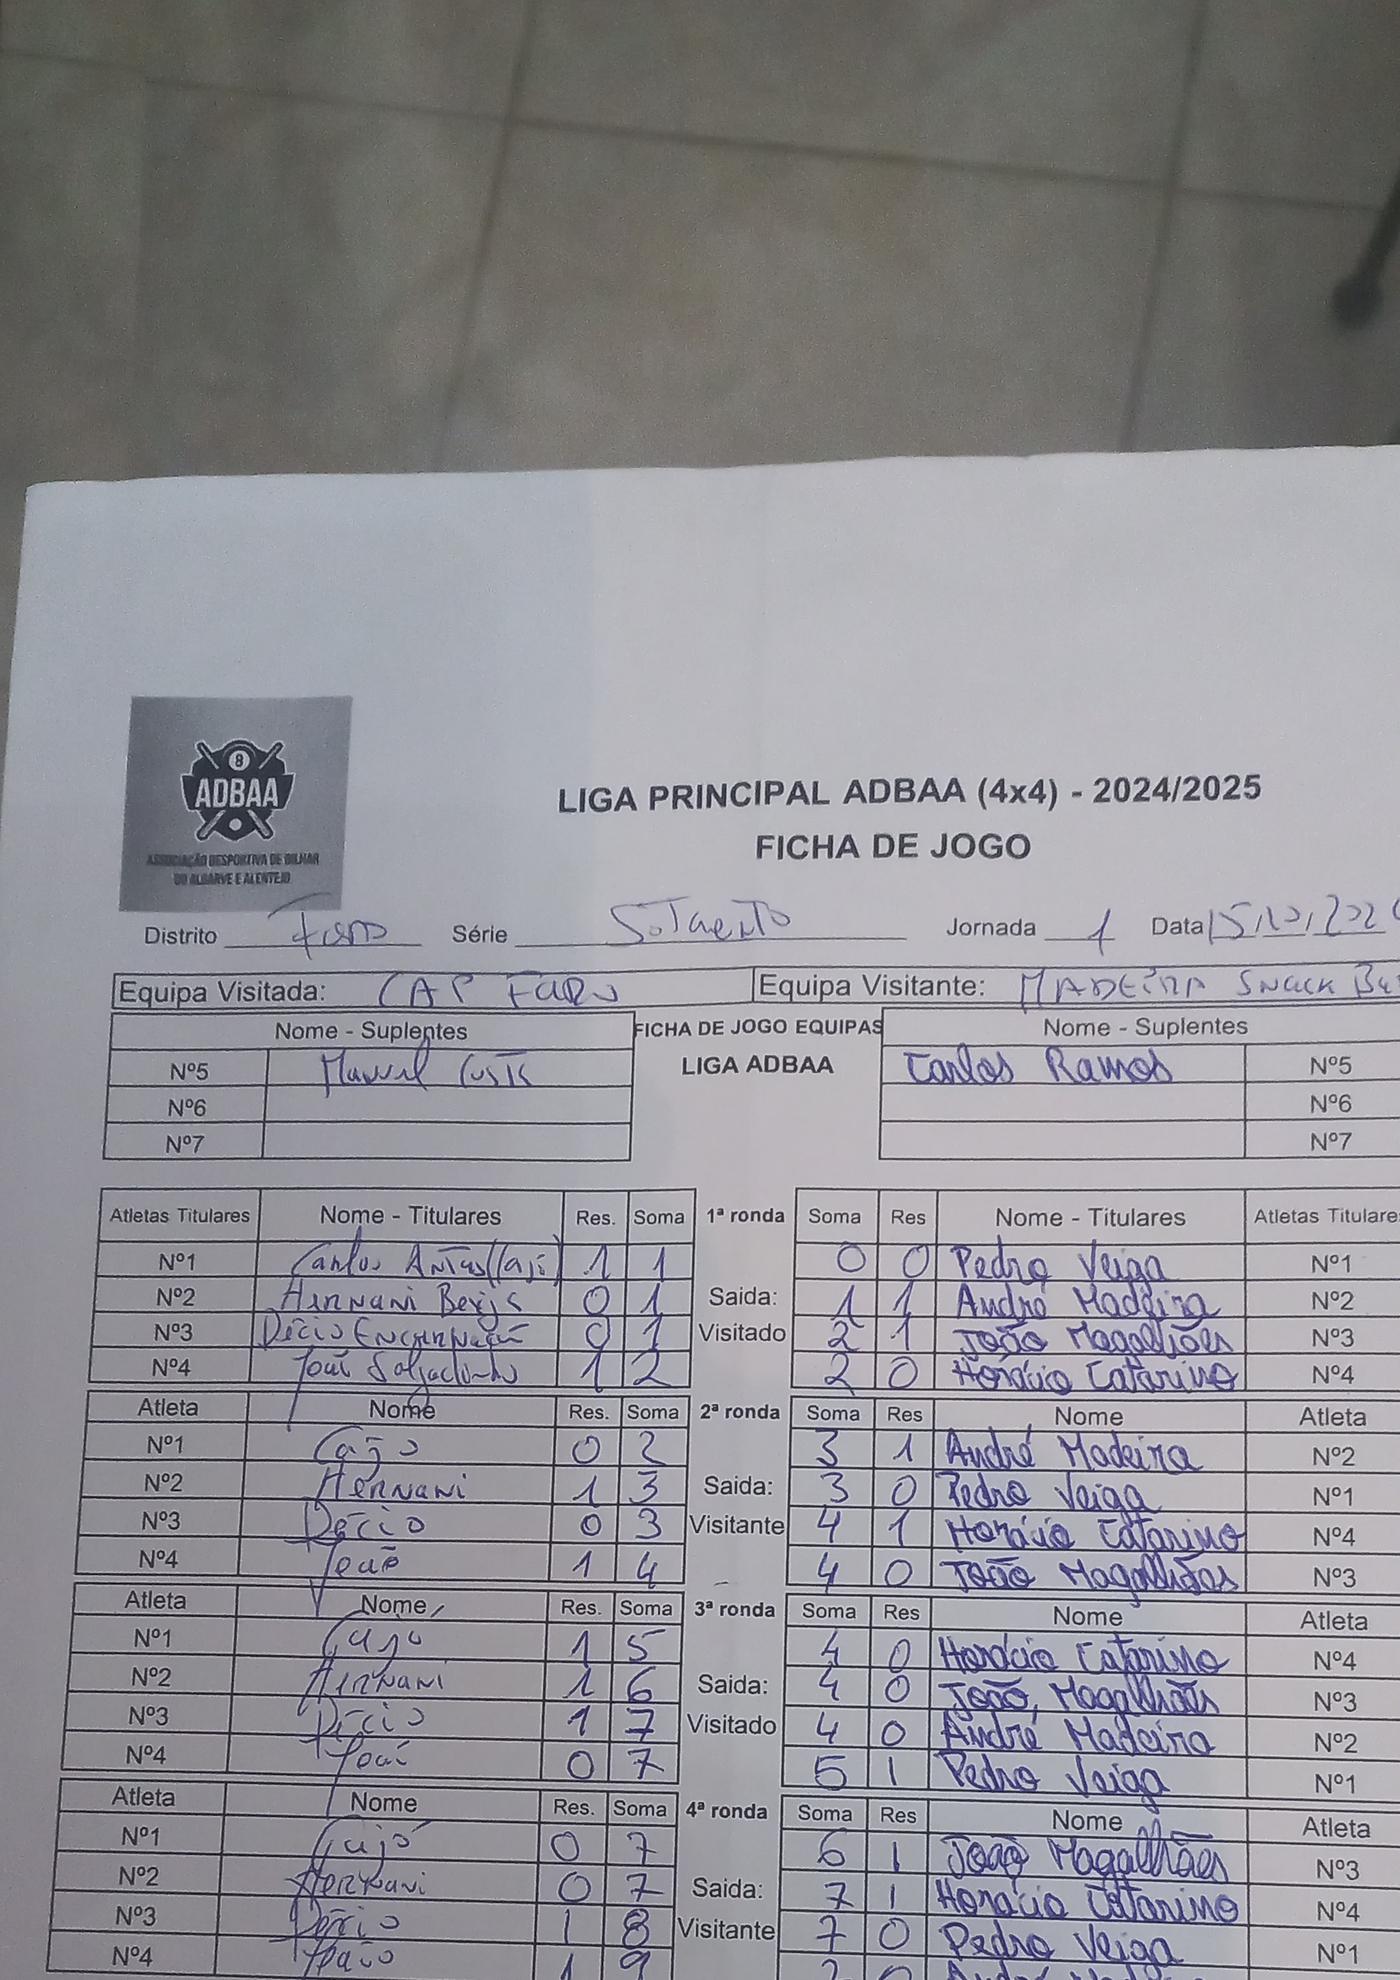 8
ADBAA
ASSOCIAÇÃO DESPORTIVA DE BILHAR
DO ALGARVE E ALENTEJO
LIGA PRINCIPAL ADBAA (4x4) - 2024/2025
FICHA DE JOGO
Distrito Faro Série Sotavento Jornada 1 Data 15/10/202
Equipa Visitada: CAP FARO Equipa Visitante: MADEIRA SNACK Ba
Nome - Suplentes FICHA DE JOGO EQUIPAS Nome - Suplentes
Nº5 Manuel Costa LIGA ADBAA Carlos Ramos Nº5
Nº6 Nº6
Nº7 Nº7
Atletas Titulares Nome - Titulares Res. Soma 1ª ronda Soma Res Nome - Titulares Atletas Titulare
Nº1 Carlos Antas (Cajó) 1 1 0 0 Pedro Veiga Nº1
Nº2 Hernani 0 1 Saida: 1 1 André Madeira Nº2
Nº3 Décio Encarnação 0 1 Visitado 2 1 João Magalhães Nº3
Nº4 João Salgadinho 1 2 2 0 Horácio Catarino Nº4
Atleta Nome Res. Soma 2ª ronda Soma Res Nome Atleta
Nº1 Cajó 0 2 3 1 André Madeira Nº2
Nº2 Hernani 1 3 Saida: 3 0 Pedro Veiga Nº1
Nº3 Décio 0 3 Visitante 4 1 Horácio Catarino Nº4
Nº4 João 1 4 4 0 João Magalhães Nº3
Atleta Nome Res. Soma 3ª ronda Soma Res Nome Atleta
Nº1 Cajó 1 5 4 0 Horácio Catarino Nº4
Nº2 Hernani 1 6 Saida: 4 0 João Magalhães Nº3
Nº3 Décio 1 7 Visitado 4 0 André Madeira Nº2
Nº4 João 0 7 5 1 Pedro Veiga Nº1
Atleta Nome Res. Soma 4ª ronda Soma Res Nome Atleta
Nº1 Cajó 0 7 6 1 João Magalhães Nº3
Nº2 Hernani 0 7 Saida: 7 1 Horácio Catarino Nº4
Nº3 Décio 1 8 Visitante 7 0 Pedro Veiga Nº1
Nº4 João 1 9